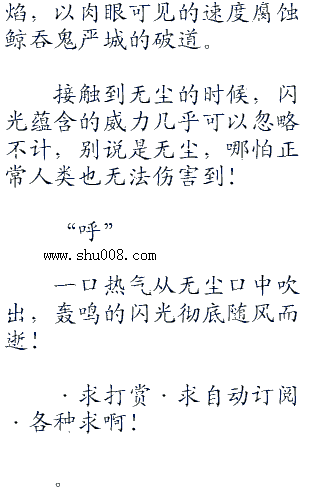 焰，以肉眼可见的速度腐蚀
鲸吞鬼严城的破道。
接触到无尘的时候，闪
光蕴含的威力几乎可以忽略
不计，别说是无尘，哪怕正
常人类也无法伤害到！
“呼”
www.shu008.com
一口热气从无尘口中吹
出，轰鸣的闪光彻底随风而
逝！
·求打赏·求自动订阅
·各种求啊！
。